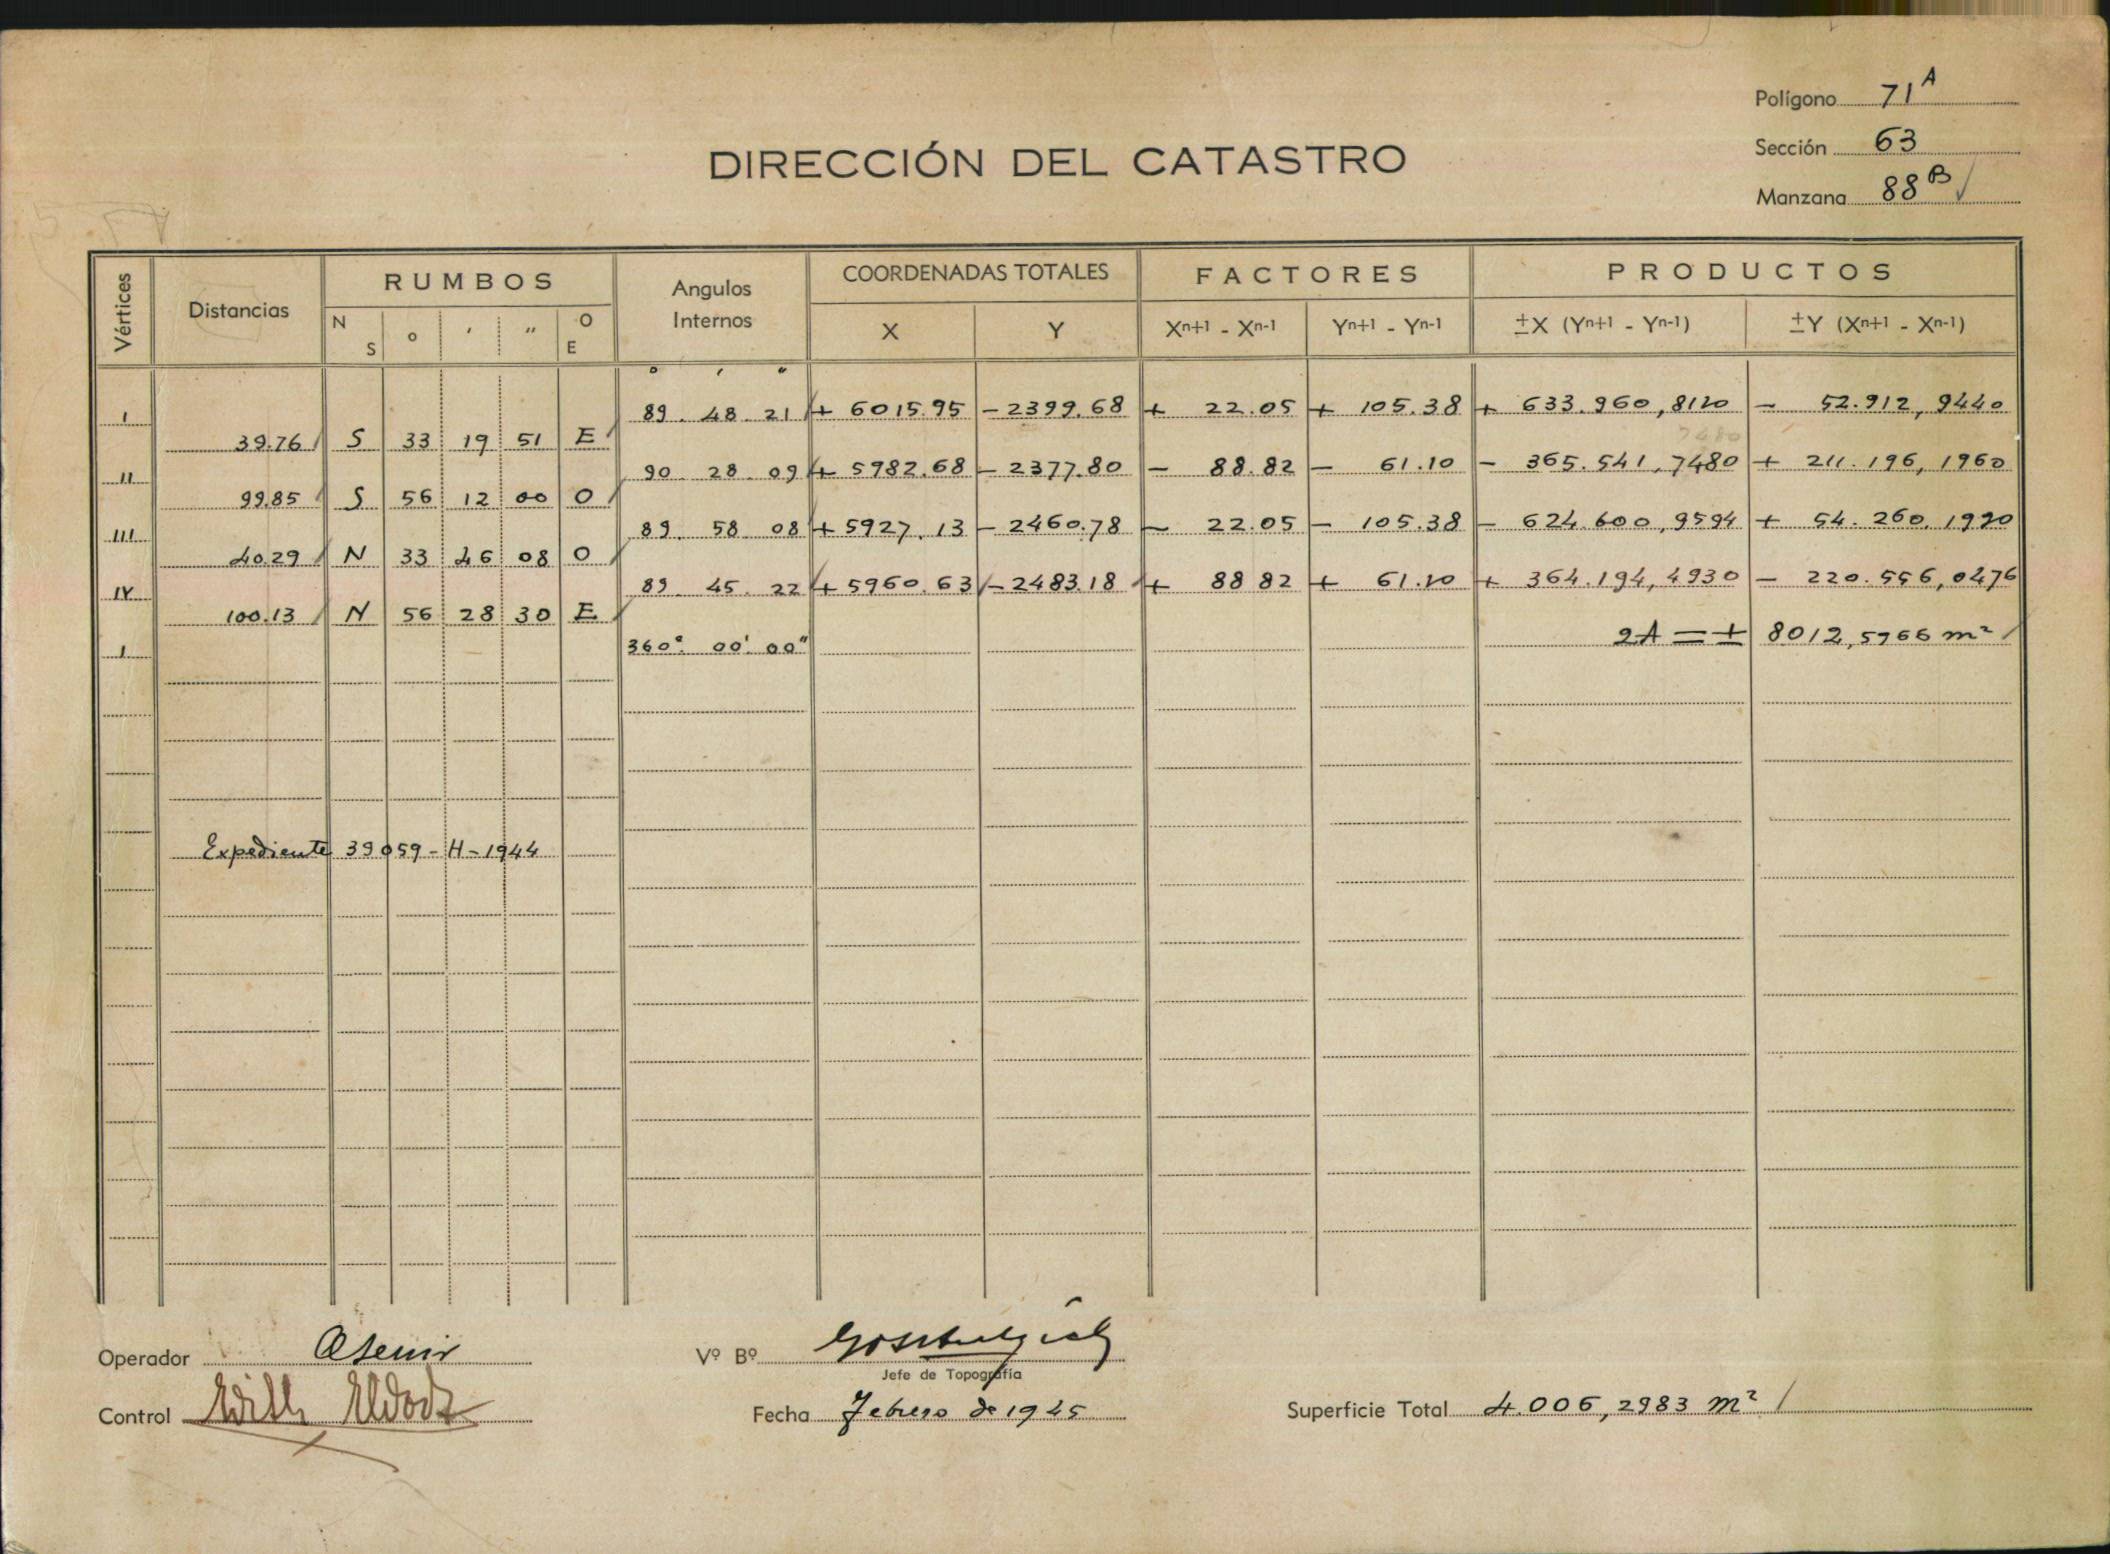 Polígono 71A
Sección 63
Manzana 88B
DIRECCIÓN DEL CATASTRO
Vértices Distancias RUMBOS Angulos Internos COORDENADAS TOTALES FACTORES PRODUCTOS
N S o ' " O E X Y Xn+1 - Xn-1 Yn+1 - Yn-1 ±X (Yn+1 - Yn-1) ±Y (Xn+1 - Xn-1)
o ' "
I 89. 48 21 + 6015.95 - 2399.68 + 22.05 + 105.38 + 633.960,8110 - 52.912,9440
39.76 S 33 19 51 E
7480
II 90 28 09 + 5982.68 - 2377.80 - 88.82 - 61.10 - 365.541,7480 + 211.196,1960
99.85 S 56 12 00 O
III 89. 58 08 + 5927.13 - 2460.78 - 22.05 - 105.38 - 624.600,9594 + 54.260,1990
40.29 N 33 46 08 O
IV 89 45. 22 + 5960.63 - 2483.18 + 88 82 + 61.10 + 364.194,4930 - 220.556,0476
100.13 N 56 28 30 E
I 360° 00' 00" 2A = ± 8012,5966 m²
Expediente 39059-H-1944
Operador
Control
Vº Bº
Jefe de Topografía
Fecha Febrero de 1945
Superficie Total 4.006,2983 m²